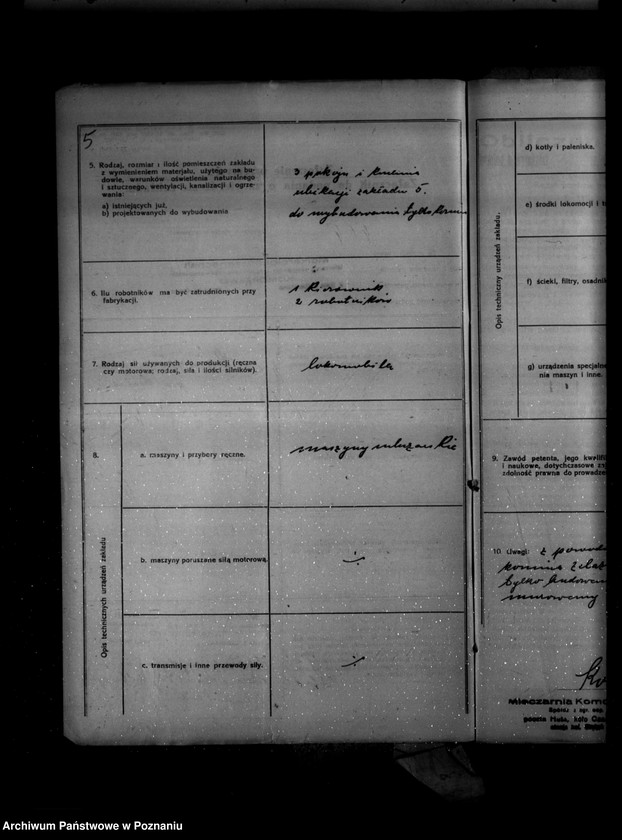 5
5. Rodzaj, rozmiar i ilość pomieszczeń zakładu
z wymienieniem materjału, użytego na bu-
dowie, warunków oświetlenia naturalnego
i sztucznego, wentylacji, kanalizacji i ogrze-
wania:
a) istniejących już,
b) projektowanych do wybudowania
3 pokoju i kuchnia
ubikacji zakładu 5.
do wybudowania tylko komin
6. Ilu robotników ma być zatrudnionych przy
fabrykacji.
1 kierownik
2 robotników
7. Rodzaj sił używanych do produkcji (ręczna
czy motorowa; rodzaj, siła i ilości silników).
lokomobila
8.
Opis technicznych urządzeń zakładu
a. maszyny i przybory ręczne.
maszyny mleczarskie
b. maszyny poruszane siłą motorową.
c. transmisje i inne przewody siły.
Opis techniczny urządzeń zakładu.
d) kotły i paleniska.
e) środki lokomocji i
f) ścieki, filtry, osadnik
g) urządzenia specjalne
nia maszyn i inne.
9. Zawód petenta, jego kwalifi
i naukowe, dotychczasowe
zdolność prawna do prowadze
10. Uwagi: z powodu
komina
tylko
murowany
Mleczarnia
Spółdz. z ogr. odp.
poczta Huta, koło
Archiwum Państwowe w Poznaniu